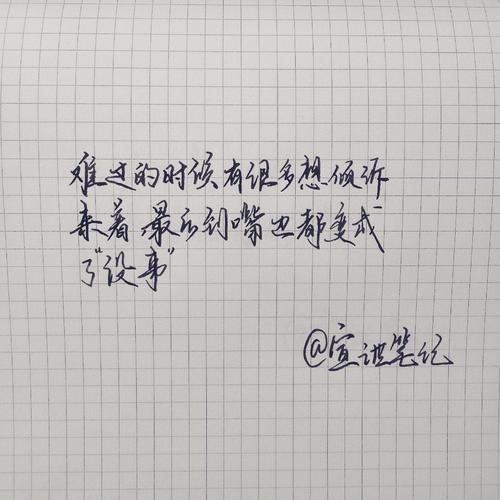 难过的时候有很多想倾诉
来着,最后到嘴边都变成
了"没事"
@宣迪笔记